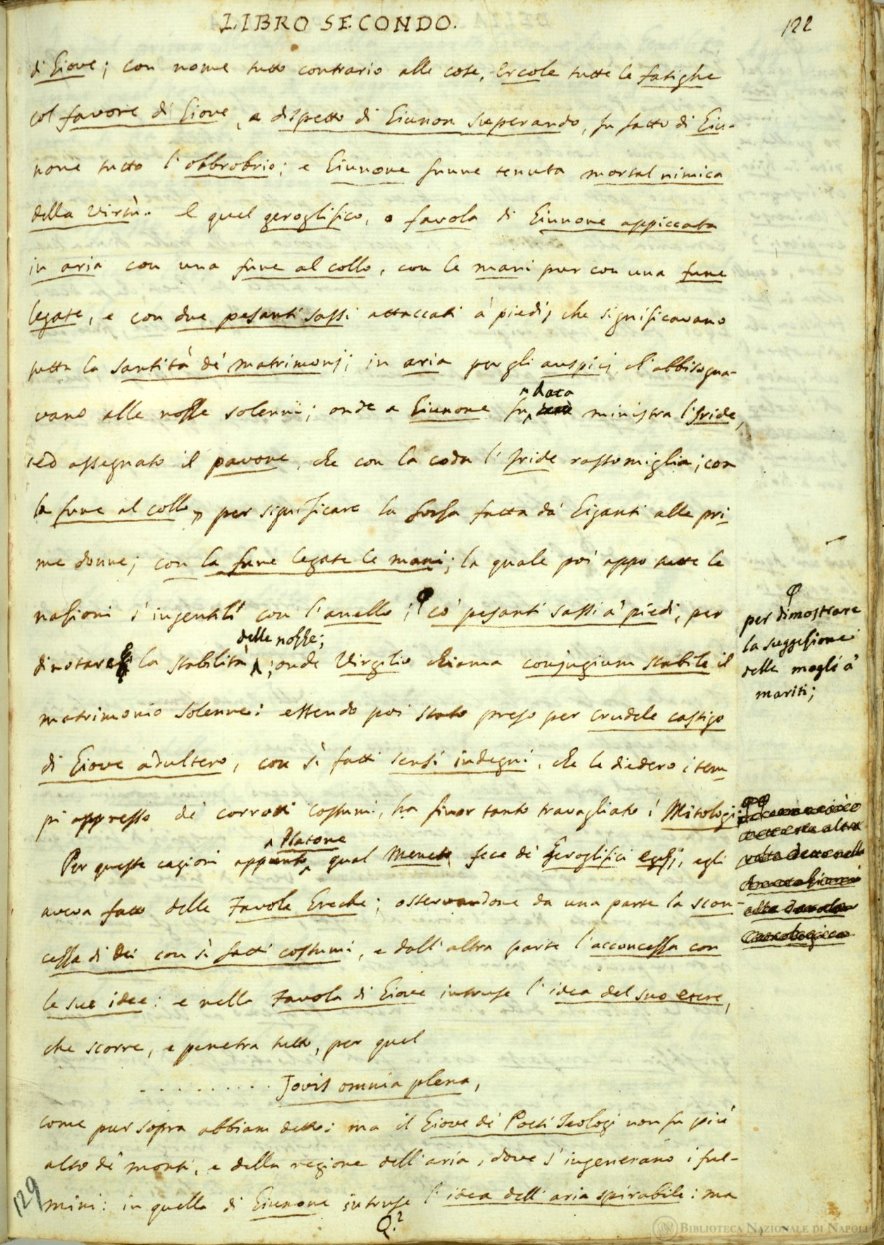 LIBRO SECONDO.
122
di Giove; con nome tutto contrario alle cose, Ercole tutte le fatighe
col favore di Giove, a dispetto di Giunon superando, fu fatto di Giu-
none tutto l'obbrobrio; e Giunone funne tenuta mortal nimica
della virtù. E quel geroglifico, o favola di Giunone appiccata
in aria con una fune al collo, con le mani pur con una fune
legate, e con due pesanti sassi attaccati a' piedi, che significavano
tutta la santità de' matrimonj; in aria per gli auspicj, ch'abbisogna-
vano alle nozze solenni; onde a Giunone fu data ministra l'Iride,
ed assegnato il pavone, che con la coda l'Iride rassomiglia; con
la fune al collo, per significare la forza fatta da' Giganti alle pri-
me donne; con la fune legate le mani; la quale poi appo tutte le
nazioni s'ingentilì con l'anello; φ co' pesanti sassi a' piedi, per
φ per dimostrare
la suggezione
delle mogli a'
mariti;
dinotare la stabilità delle nozze; onde Virgilio chiama conjugium stabile il
matrimonio solenne: essendo poi stato preso per crudele castigo
di Giove adultero, con sì fatti sensi indegni, che le diedero i tem-
pi appresso de' corrotti costumi, ha finor tanto travagliato i Mitologi:
Per queste cagioni appunto Platone, qual Maneto fece de' Geroglifici egizj, egli
aveva fatto delle Favole Greche; osservandone da una parte la scon-
cezza di Dei con sì fatti costumi, e dall'altra parte l'acconcezza con
le sue idee: e nella Favola di Giove intruse l'idea del suo etere,
che scorre, e penetra tutto, per quel
. . . . . . . . . . Jovis omnia plena,
come pur sopra abbiam detto: ma il Giove de' Poeti Teologi non fu più
alto de' monti, e della regione dell'aria, dove s'ingenerano i ful-
mini: in quella di Giunone intruse l'idea dell'aria spirabile: ma
129
Q.2
BIBLIOTECA NAZIONALE DI NAPOLI